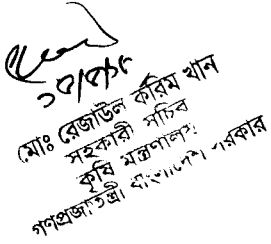 ১৫/৫/১৮
মোঃ রেজাউল করিম খান
সহকারী সচিব
কৃষি মন্ত্রণালয়
গণপ্রজাতন্ত্রী বাংলাদেশ সরকার